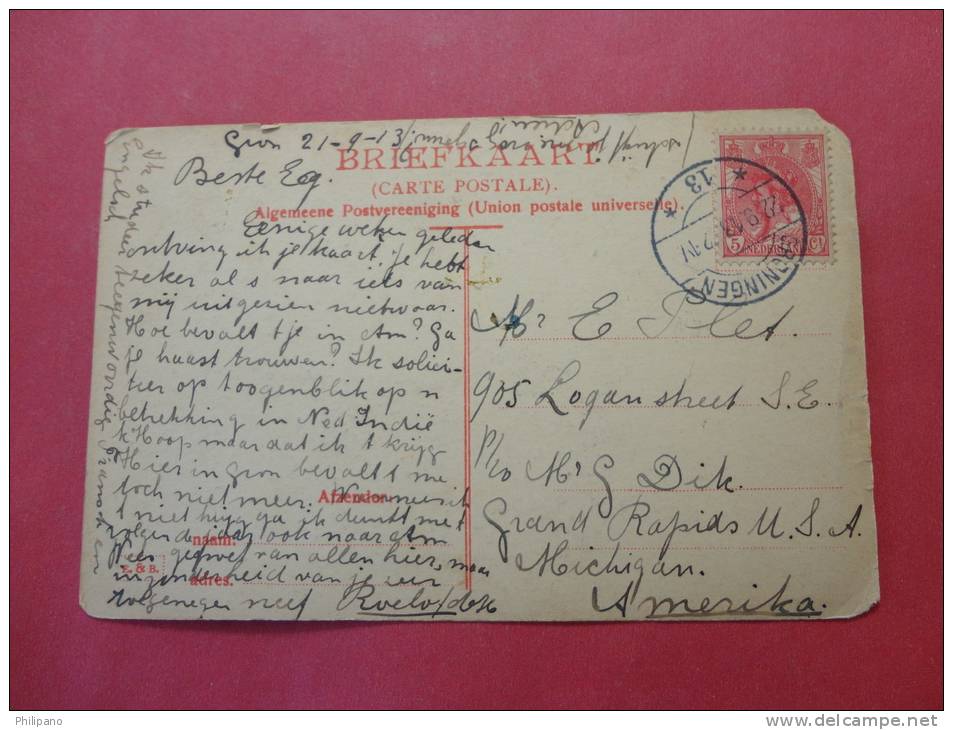 Gron 21-9-13
BRIEFKAART
(CARTE POSTALE).
Algemeene Postvereeniging (Union postale universelle).
Beste Eg.
Eenige weken geleden
ontving ik je kaart. Je hebt
zeker al s naar iets van
mij uitgezien nietwaar.
Hoe bevalt 't je in Am? Ga
je haast trouwen? Ik solici-
teer op 't oogenblik op 'n
betrekking in Ned Indië
k Hoop maar dat ik 't krijg
Hier in Gron bevalt 't me
toch niet meer. Wanneer ik
t niet krijg ga ik denkt me
volgend jaar ook naar Am
Wees gegroet van allen hier, maar
inzonderheid van je
toegenegen neef Roelof
Afzender
naam:
adres:
E. & B.
Ik studeer tegenwoordig Fransch en
Engelsch
schrijf
GRONINGEN
22 9 13
* 13 *
5 NEDERLAND Ct
Mr E
905 Logan street S.E.
p/o Mr G Dik.
Grand Rapids U.S.A.
Michigan.
Amerika.
Philipano
www.delcampe.net